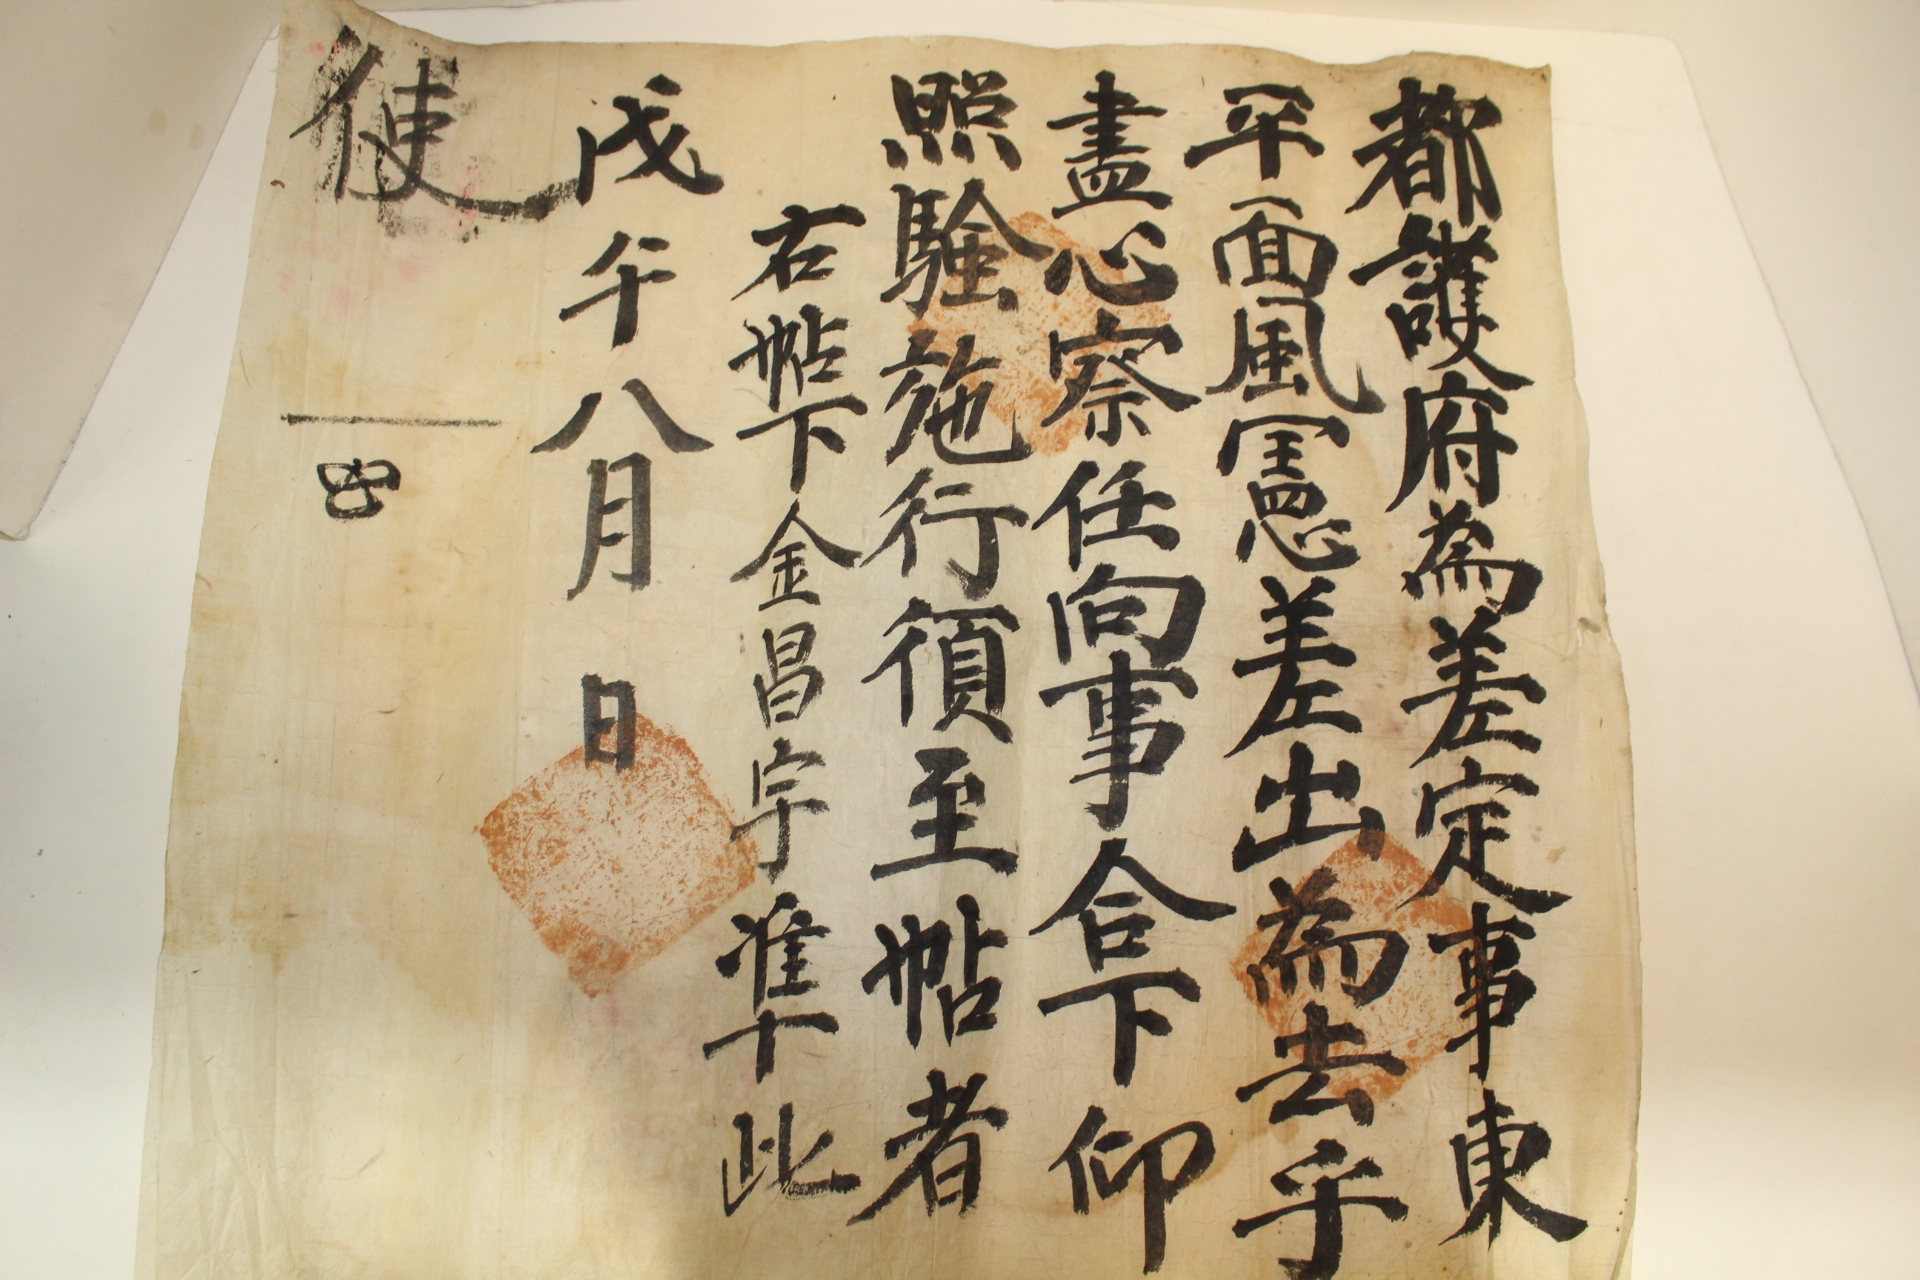 都護府為差定事東
平面風憲差出為去乎
盡心察任向事合下仰
照驗施行須至帖者
右帖下金昌宇準此
戊午八月 日
使